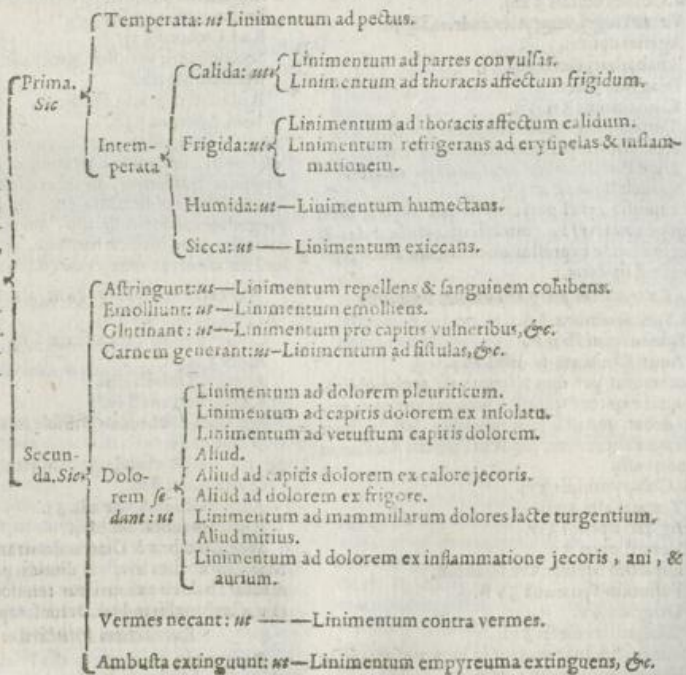 Temperata: ut Linimentum ad pectus.
Prima.
Sic
Intemperata
Calida: ut
Linimentum ad partes convulsas.
Linimentum ad thoracis affectum frigidum.
Frigida: ut
Linimentum ad thoracis affectum calidum.
Linimentum refrigerans ad erysipelas & inflam-
mationem.
Humida: ut—Linimentum humectans.
Sicca: ut —— Linimentum exiccans.
Astringunt: ut—Linimentum repellens & sanguinem cohibens.
Emolliunt: ut—Linimentum emolliens.
Glutinant: ut—Linimentum pro capitis vulneribus, &c.
Carnem generant: ut—Linimentum ad fistulas, &c.
Secun-
da. Sic
Dolo-
rem se-
dant: ut
Linimentum ad dolorem pleuriticum.
Linimentum ad capitis dolorem ex insolatu.
Linimentum ad vetustum capitis dolorem.
Aliud.
Aliud ad capitis dolorem ex calore jecoris.
Aliud ad dolorem ex frigore.
Linimentum ad mammularum dolores lacte turgentium.
Aliud mitius.
Linimentum ad dolorem ex inflammatione jecoris, ani, &
aurium.
Vermes necant: ut — —Linimentum contra vermes.
Ambusta extinguunt: ut—Linimentum empyreuma extinguens, &c.